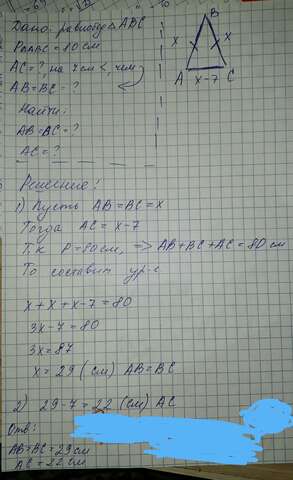 Дано: равнобед. △ABC
P△ABC = 80 см
AC = ? на 7 см <, чем
AB = BC = ?
Найти:
AB = BC = ?
AC = ?
B
x
x
A
x - 7
C
Решение:
1) Пусть AB = BC = x
Тогда AC = x - 7
Т.к P = 80 см, => AB + BC + AC = 80 см
То составим ур-е
x + x + x - 7 = 80
3x - 7 = 80
3x = 87
x = 29 (см) AB = BC
2) 29 - 7 = 22 (см) AC
Отв:
AB = BC = 29 см
AC = 22 см